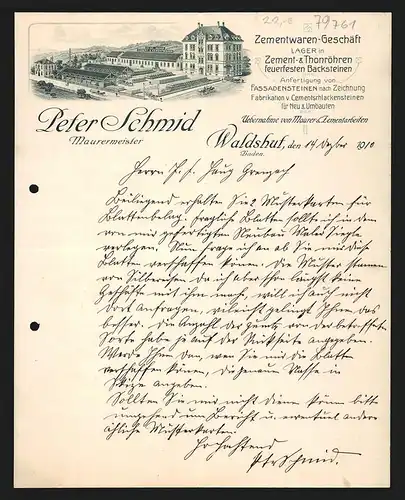 79761
Zementwaren-Geschäft
LAGER in
Zement- & Thonröhren
feuerfesten Backsteinen
Anfertigung von
FASSADENSTEINEN nach Zeichnung
Fabrikation v. Cementschlackensteinen
für Neu & Umbauten
Peter Schmid
Maurermeister
Uebernahme von Maurer & Zementarbeiten
Waldshut, den 14 Dezbr 1910
Baden.
Herrn Haug Grenzach
Beiliegend erhalten Sie 2 Musterkarten für
Blattenbelag. fragliche Blatten sollte ich in dem
von mir gefertigten Neubau
verlegen. Nun frage ich an ob Sie mir diese
Blatten verschaffen können. Die Muster stammen
von Silbereisen Da ich aber schon längst keine
Geschäfte mit ihm mach, will ich auch nicht
dort anfragen, vieleicht gelingt Ihnen das
besser. Die Anzahl der von der betreffenden
Sorte habe je auf der Rückseite angegeben.
Werde Ihnen dan, wen Sie mir die Blatten
verschaffen könen, die genauen Masse in
Skize angeben.
Sollten Sie mir nicht dienen könen bitte
umgehend um Bericht u. eventuel andere
ähliche Musterkarten.
Hochachtend
P. Schmid.